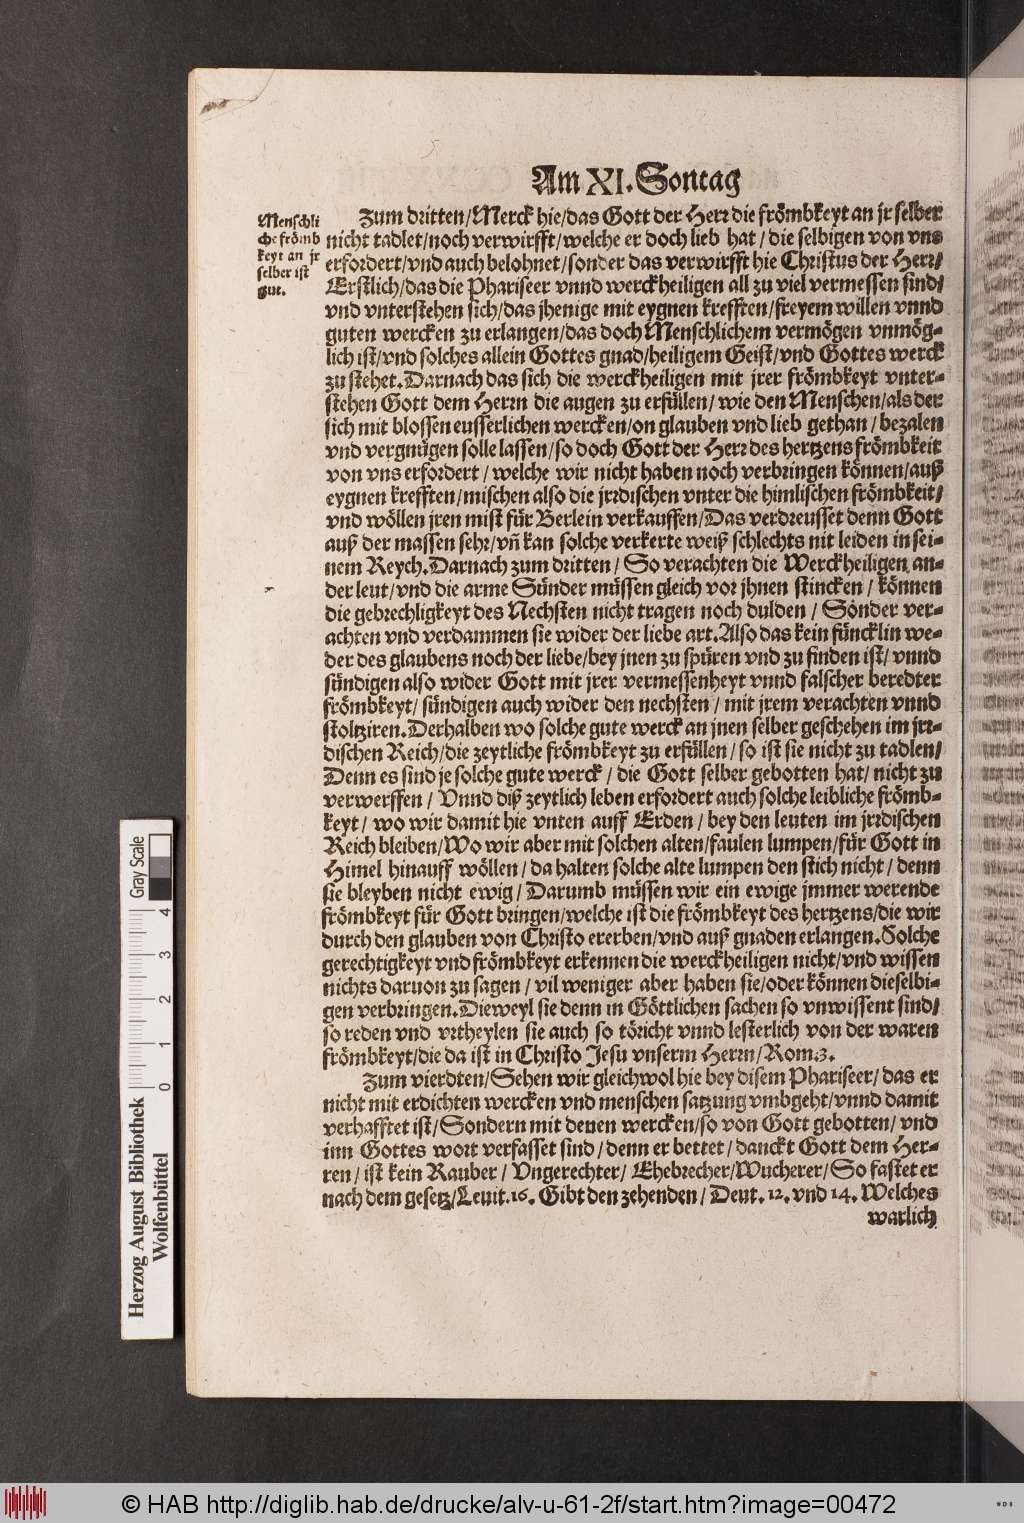 Am XI. Sontag
Menschli
che frömb
keyt an jr
selber ist
gut.
Zum dritten/Merck hie/das Gott der Herr die frömbkeyt an jr selber
nicht tadlet/noch verwirfft/welche er doch lieb hat/die selbigen von vns
erfordert/vnd auch belohnet/sonder das verwirfft hie Christus der Herr/
Erstlich/das die Phariseer vnnd werckheiligen all zu viel vermessen sind/
vnd vnterstehen sich/das jhenige mit eygnen krefften/freyem willen vnnd
guten wercken zu erlangen/das doch Menschlichem vermögen vnmög-
lich ist/vnd solches allein Gottes gnad/heiligem Geist/vnd Gottes werck
zu stehet.Darnach das sich die werckheiligen mit jrer frömbkeyt vnter-
stehen Gott dem Herrn die augen zu erfüllen/wie den Menschen/als der
sich mit blossen eusserlichen wercken/on glauben vnd lieb gethan/bezalen
vnd vergnügen solle lassen/so doch Gott der Herr des hertzens frömbkeit
von vns erfordert/welche wir nicht haben noch verbringen können/auß
eygnen krefften/mischen also die jrrdischen vnter die himlischen frömbkeit/
vnd wöllen jren mist für Berlein verkauffen/Das verdreusset denn Gott
auß der massen sehr/vñ kan solche verkerte weiß schlechts nit leiden in sei-
nem Reych.Darnach zum dritten/So verachten die Werckheiligen an-
der leut/vnd die arme Sünder müssen gleich vor jhnen stincken/können
die gebrechligkeyt des Nechsten nicht tragen noch dulden/Sönder ver-
achten vnd verdammen sie wider der liebe art.Also das kein füncklin we-
der des glaubens noch der liebe/bey jnen zu spüren vnd zu finden ist/vnnd
sündigen also wider Gott mit jrer vermessenheyt vnnd falscher beredter
frömbkeyt/sündigen auch wider den nechsten/mit jrem verachten vnnd
stoltziren.Derhalben wo solche gute werck an jnen selber geschehen im jrr-
dischen Reich/die zeytliche frömbkeyt zu erfüllen/so ist sie nicht zu tadlen/
Denn es sind je solche gute werck/die Gott selber gebotten hat/nicht zu
verwerffen/Vnnd diß zeytlich leben erfordert auch solche leibliche frömb-
keyt/wo wir damit hie vnten auff Erden/bey den leuten im jrrdischen
Reich bleiben/Wo wir aber mit solchen alten/faulen lumpen/für Gott in
Himel hinauff wöllen/da halten solche alte lumpen den stich nicht/denn
sie bleyben nicht ewig/Darumb müssen wir ein ewige jmmer werende
frömbkeyt für Gott bringen/welche ist die frömbkeyt des hertzens/die wir
durch den glauben von Christo ererben/vnd auß gnaden erlangen.Solche
gerechtigkeyt vnd frömbkeyt erkennen die werckheiligen nicht/vnd wissen
nichts daruon zu sagen/vil weniger aber haben sie/oder können dieselbi-
gen verbringen.Dieweyl sie denn in Göttlichen sachen so vnwissent sind/
so reden vnd vrtheylen sie auch so töricht vnnd lesterlich von der waren
frömbkeyt/die da ist in Christo Jesu vnserm Herrn/Rom.3.
Zum vierdten/Sehen wir gleichwol hie bey disem Phariseer/das er
nicht mit erdichten wercken vnd menschen satzung vmbgeht/vnnd damit
verhafftet ist/Sondern mit denen wercken/so von Gott gebotten/vnd
inn Gottes wort verfasset sind/denn er bettet/danckt Gott dem Her-
ren/ist kein Rauber/Vngerechter/Ehebrecher/Wucherer/So fastet er
nach dem gesetz/Leuit.16. Gibt den zehenden/Deut.12.vnd 14. Welches
warlich
Gray Scale
4
3
2
1
0
Herzog August Bibliothek
Wolfenbüttel
© HAB http://diglib.hab.de/drucke/alv-u-61-2f/start.htm?image=00472